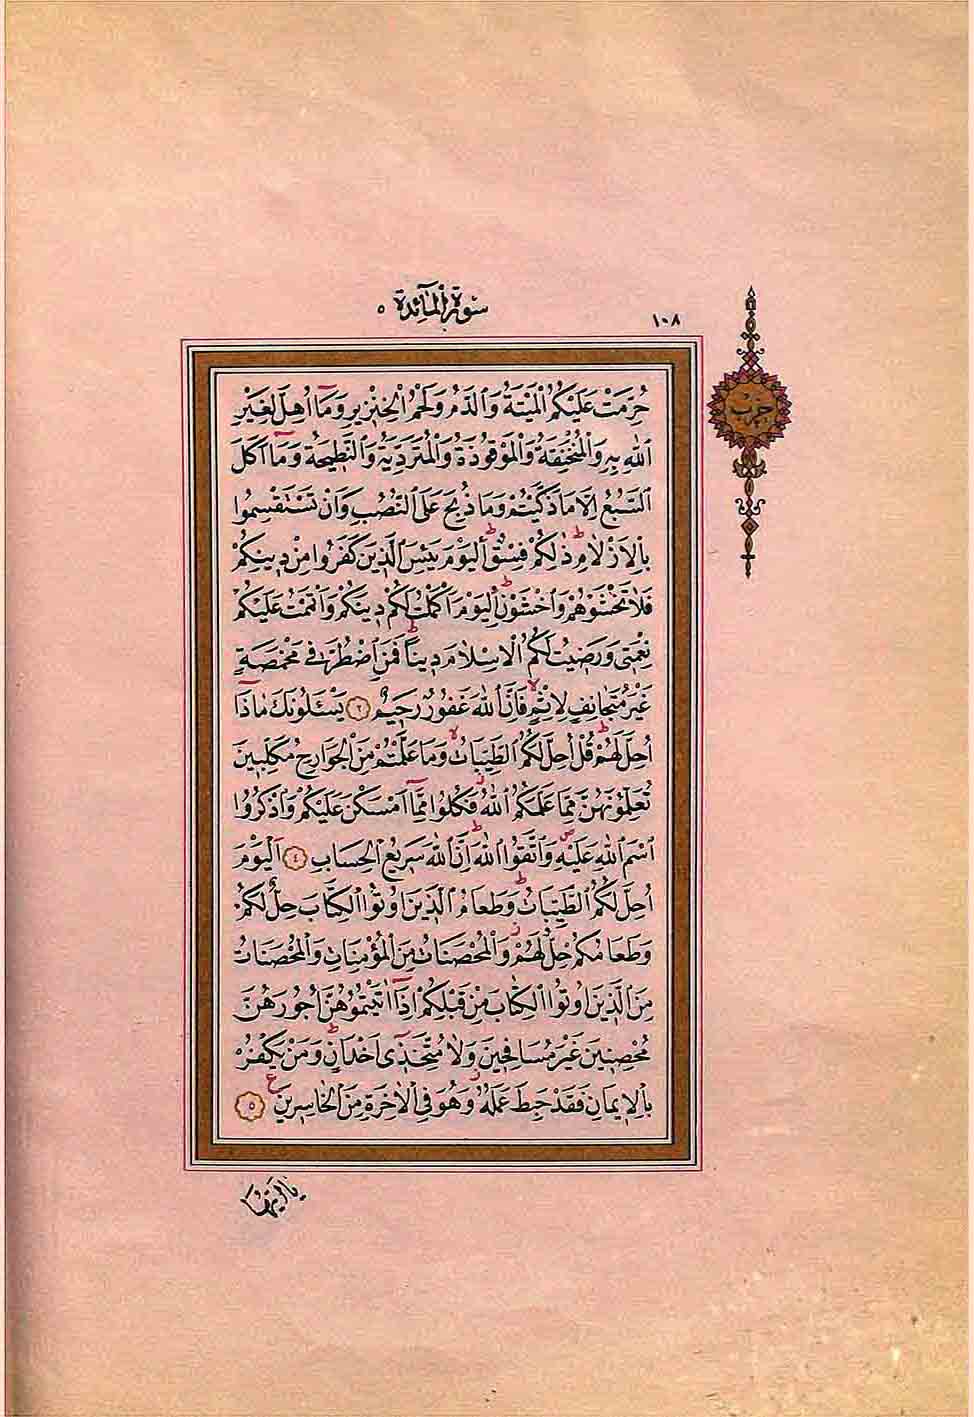 سورة المآئدة ٥
١٠٨
حزب
حُرِّمَتْ عَلَيْكُمُ الْمَيْتَةُ وَالدَّمُ وَلَحْمُ الْخِنْزِيرِ وَمَآ اُهِلَّ لِغَيْرِ
اللّٰهِ بِهِ وَالْمُنْخَنِقَةُ وَالْمَوْقُوذَةُ وَالْمُتَرَدِّيَةُ وَالنَّطِيحَةُ وَمَآ اَكَلَ
السَّبُعُ اِلَّا مَا ذَكَّيْتُمْ وَمَا ذُبِحَ عَلَى النُّصُبِ وَاَنْ تَسْتَقْسِمُوا
بِالْاَزْلَامِ ذٰلِكُمْ فِسْقٌ اَلْيَوْمَ يَئِسَ الَّذِينَ كَفَرُوا مِنْ دِينِكُمْ
فَلَا تَخْشَوْهُمْ وَاخْشَوْنِ اَلْيَوْمَ اَكْمَلْتُ لَكُمْ دِينَكُمْ وَاَتْمَمْتُ عَلَيْكُمْ
نِعْمَتِي وَرَضِيتُ لَكُمُ الْاِسْلَامَ دِينًا فَمَنِ اضْطُرَّ فِي مَخْمَصَةٍ
غَيْرَ مُتَجَانِفٍ لِاِثْمٍ فَاِنَّ اللّٰهَ غَفُورٌ رَحِيمٌ ٣ يَسْـَٔلُونَكَ مَاذَآ
اُحِلَّ لَهُمْ قُلْ اُحِلَّ لَكُمُ الطَّيِّبَاتُ وَمَا عَلَّمْتُمْ مِنَ الْجَوَارِحِ مُكَلِّبِينَ
تُعَلِّمُونَهُنَّ مِمَّا عَلَّمَكُمُ اللّٰهُ فَكُلُوا مِمَّآ اَمْسَكْنَ عَلَيْكُمْ وَاذْكُرُوا
اسْمَ اللّٰهِ عَلَيْهِ وَاتَّقُوا اللّٰهَ اِنَّ اللّٰهَ سَرِيعُ الْحِسَابِ ٤ اَلْيَوْمَ
اُحِلَّ لَكُمُ الطَّيِّبَاتُ وَطَعَامُ الَّذِينَ اُوتُوا الْكِتَابَ حِلٌّ لَكُمْ
وَطَعَامُكُمْ حِلٌّ لَهُمْ وَالْمُحْصَنَاتُ مِنَ الْمُؤْمِنَاتِ وَالْمُحْصَنَاتُ
مِنَ الَّذِينَ اُوتُوا الْكِتَابَ مِنْ قَبْلِكُمْ اِذَآ اٰتَيْتُمُوهُنَّ اُجُورَهُنَّ
مُحْصِنِينَ غَيْرَ مُسَافِحِينَ وَلَا مُتَّخِذِٓي اَخْدَانٍ وَمَنْ يَكْفُرْ
بِالْاِيمَانِ فَقَدْ حَبِطَ عَمَلُهُ وَهُوَ فِي الْاٰخِرَةِ مِنَ الْخَاسِرِينَ ٥
يَآ اَيُّهَا